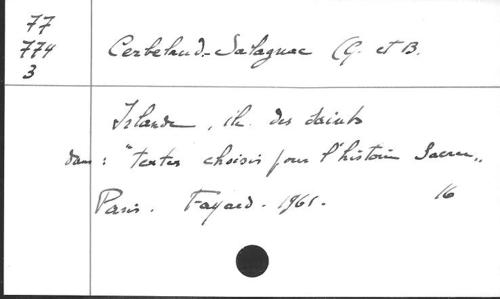 77
774
3
Cerbelaud-Salagnac (G. et B.
Irlande, île des saints
dans : "textes choisis pour l'histoire Sacrée"
Paris. Fayard. 1961. 16